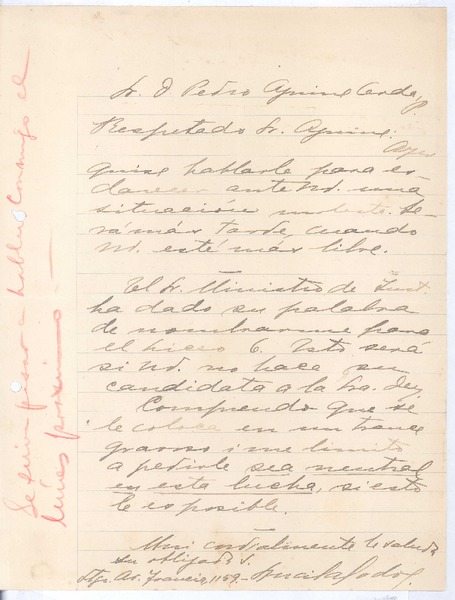 Sr. D. Pedro Aguirre Cerda, P.
Respetado Sr. Aguirre:
Ayer
quise hablarle para es-
clarecer ante Ud. una
situación molesta. Se-
rá más tarde, cuando
Ud. esté más libre.
El Sr. Ministro de Inst.
ha dado su palabra
de nombrarme para
el Liceo 6. Esto será
si Ud. no hace su
candidata a la Sra. Dey.
Comprendo que se
le coloca en un trance
gravoso i me limito
a pedirle sea neutral
en esta lucha, si esto
le es posible.
Mui cordialmente le saluda
su obligada S.
Stgo. Av. 1159 - Lucila Godoy
Se sirva pasar a hablar conmigo el
lunes próximo